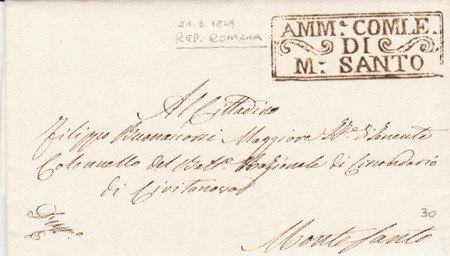 21.3.1849
REP. ROMANA
AMM.ᵉ COMLE.
DI
M.ᵗᵉ SANTO
Al Cittadino
Filippo Buonaccorsi Maggiore
Colonnello del Batt.ᵉ Nazionale di Circondario
di Civitanova
30
Monte Santo